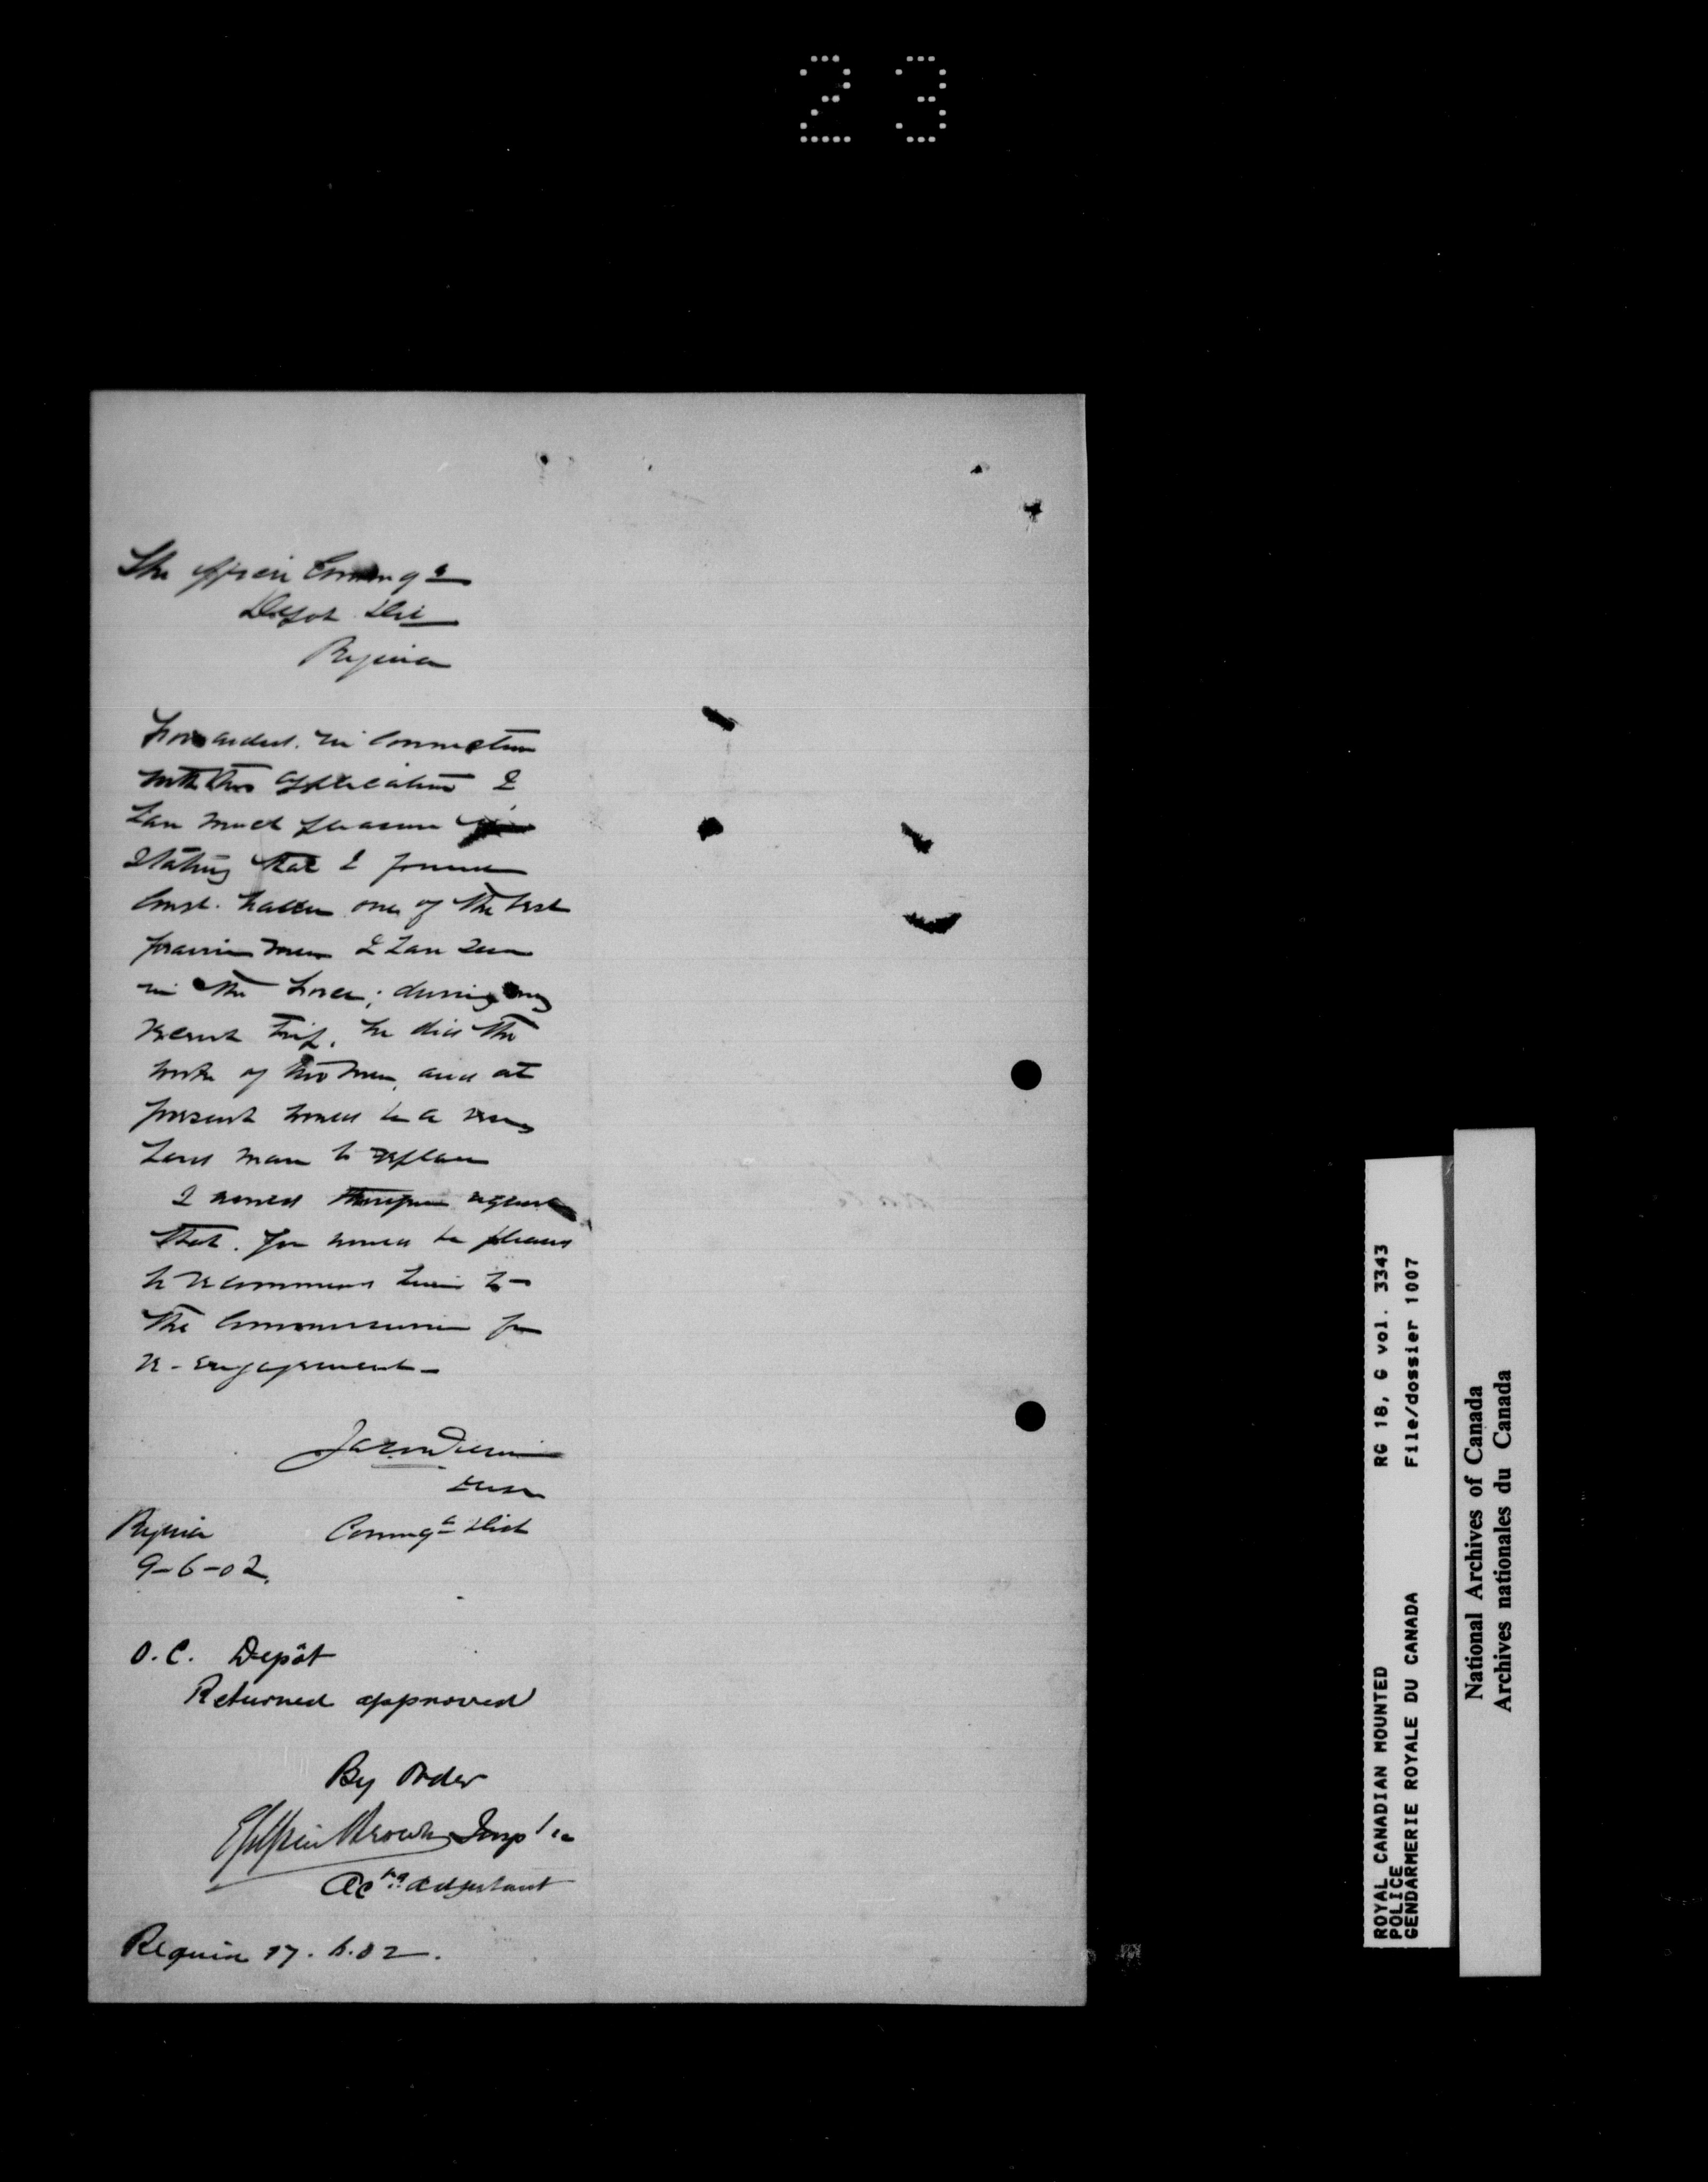 23
The Officer Commg
Depot Div
Regina
Forwarded. In Connection
with this application I
have much pleasure in
Stating that I found
Const. one of the best
prairie men I have seen
in the Force; during my
recent trip, he did the
work of two men, and at
present would be a very
hard man to replace
I would therefore request
that you would be pleased
to recommend him to
the Commissioner for
re-engagement-
Supt
Regina Commg Dist
9-6-02.
O.C. Depôt
Returned approved
By Order
Insp
Actg Adjutant
Regina 17.6.02.
ROYAL CANADIAN MOUNTED RG 18, G vol. 3343
POLICE
GENDARMERIE ROYALE DU CANADA File/dossier 1007
National Archives of Canada
Archives nationales du Canada